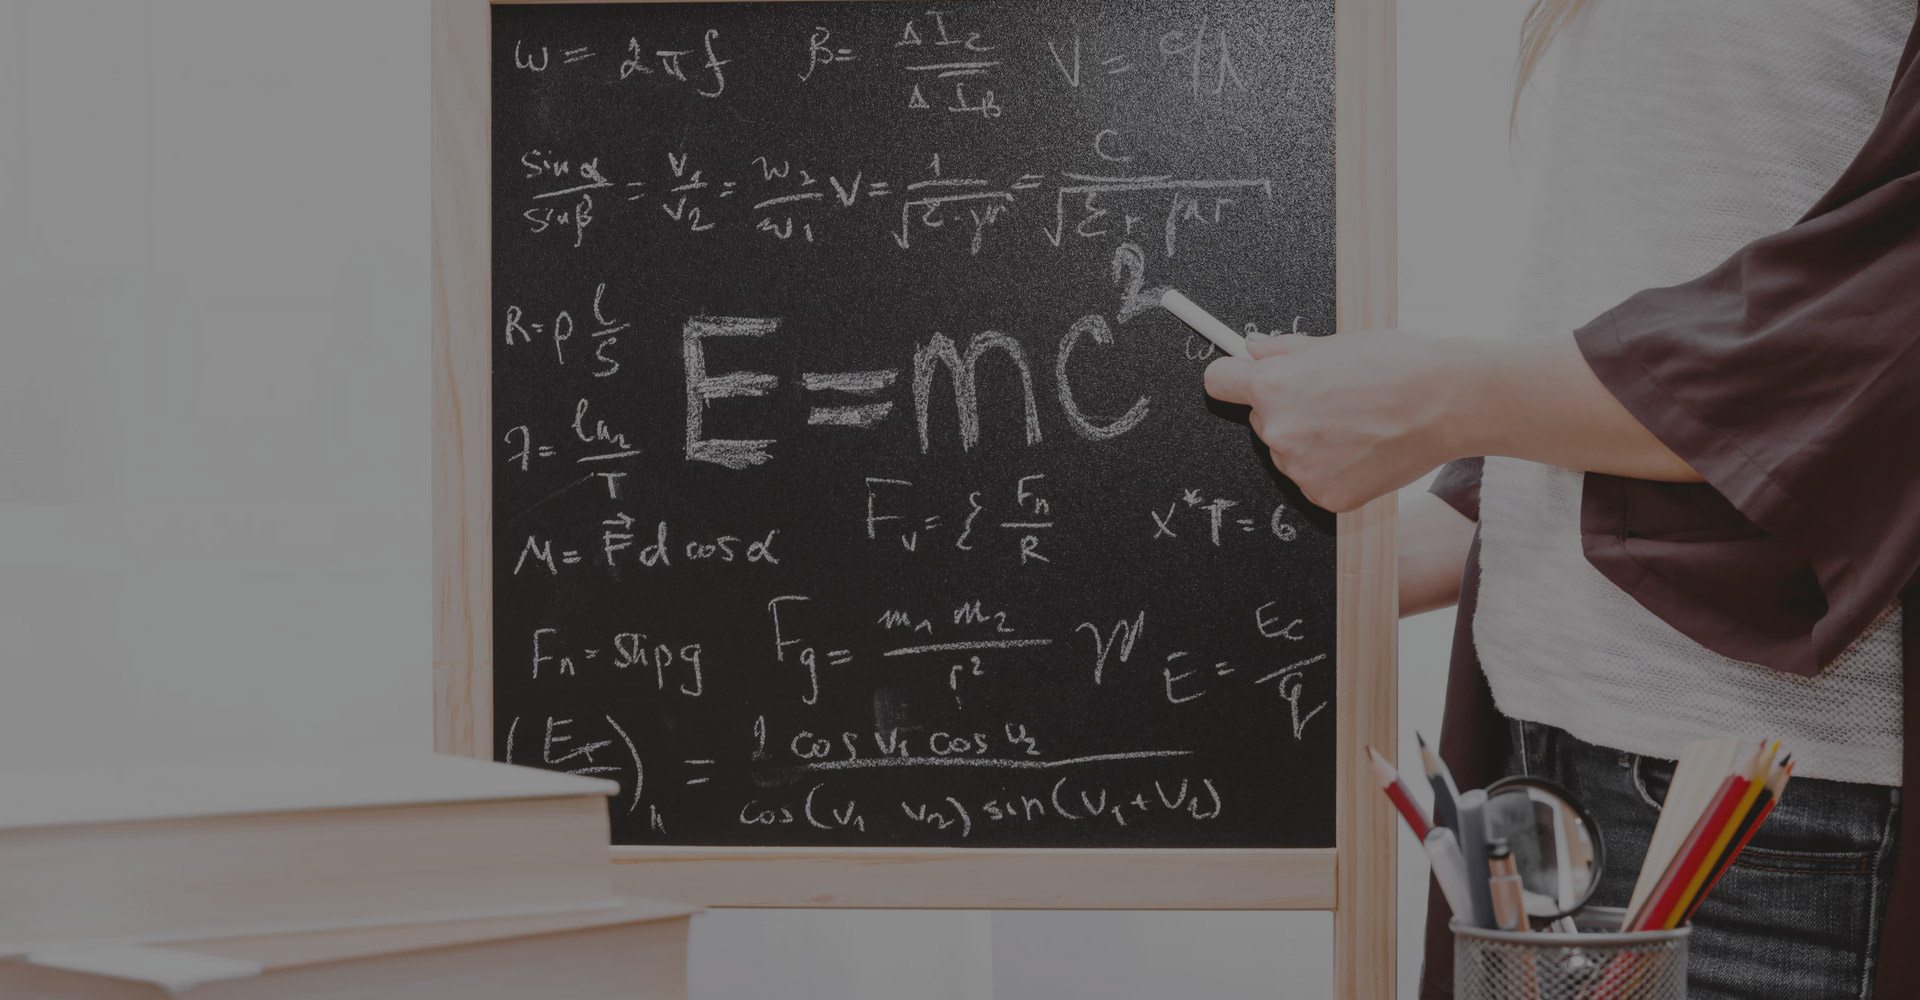 ω = 2πf β = ΔI₂/ΔI_B V = c/λ
sinα/sinβ = v₁/v₂ = w₂/w₁ V = 1/√(ε·μ) = C/√(εr μr)
R = ρ l/S
E = mc²
ln₂/T
Fv = { Fn/R x*T = 6
M = F⃗ d cosα
Fn = Shρg Fg = m₁ m₂/r² E = Ec/q
= 2 cos v₁ cos v₂/cos(v₁ v₂) sin(v₁+v₂)